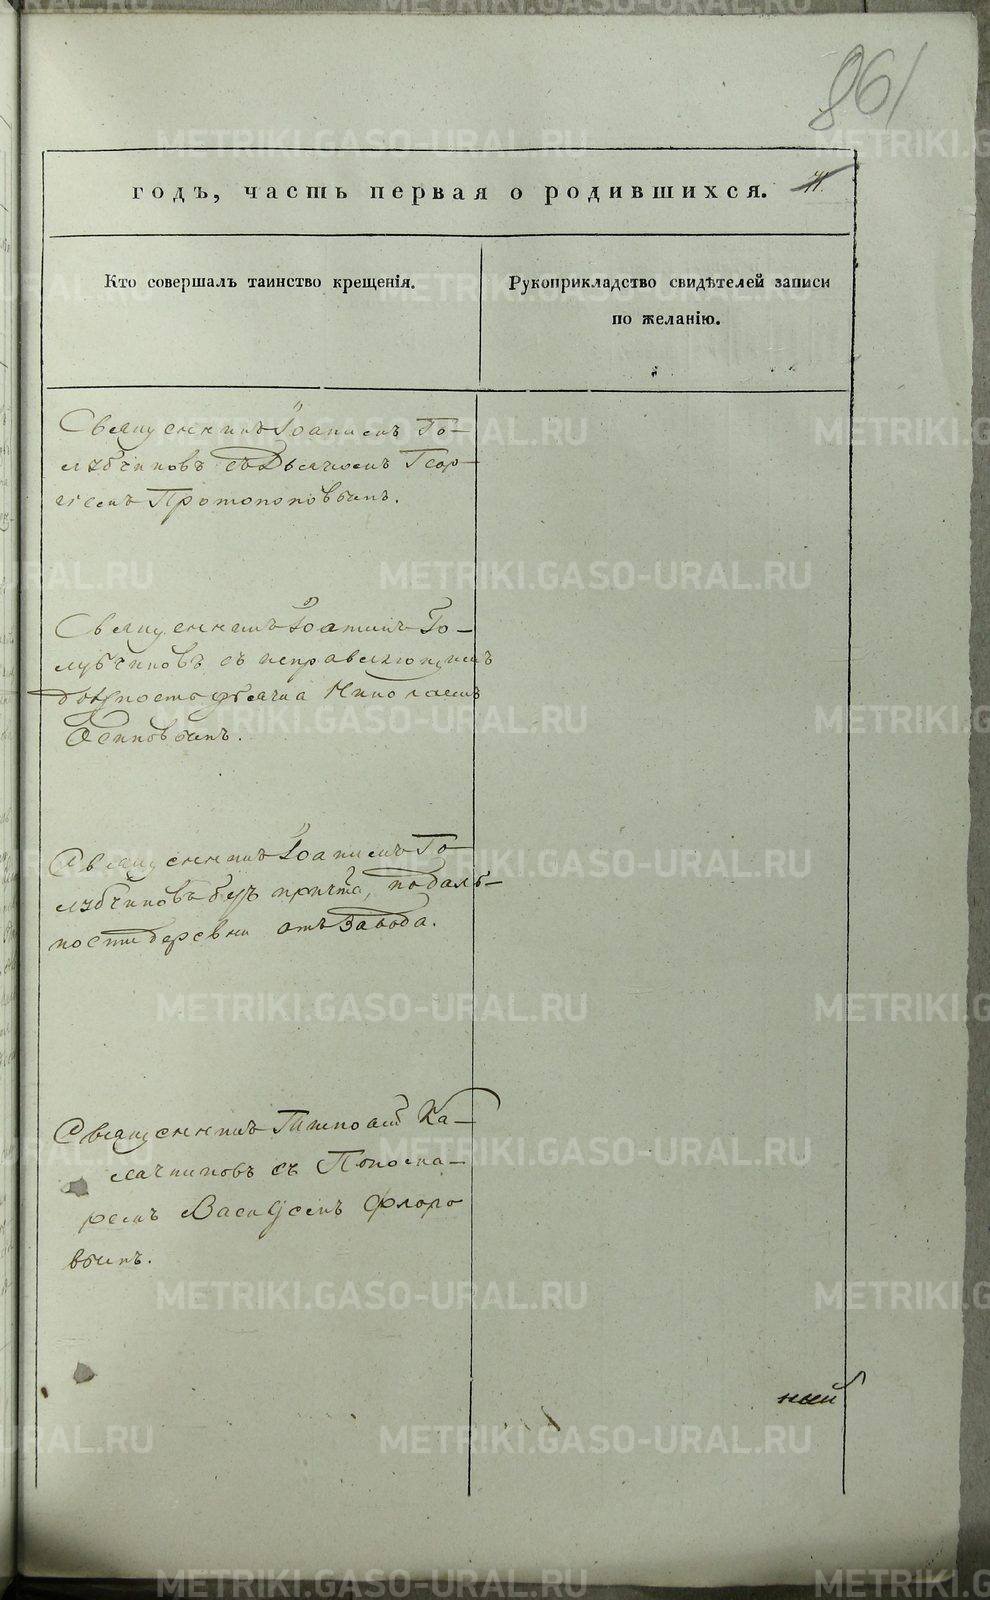 861
годъ, часть первая о родившихся.
Кто совершалъ таинство крещенія.
Рукоприкладство свидѣтелей записи
по желанію.
Священникъ Іоаннъ Го-
лубчиковъ съ Дьякономъ Геор-
гіемъ Протопоповымъ.
Священникъ Іоаннъ Го-
лубчиковъ съ исправляющимъ
должность дьячка Николаемъ
Осиповымъ.
Священникъ Іоаннъ Го-
лубчиковъ безъ причта, по даль-
ности деревни отъ завода.
Священникъ Тимоѳей Ка-
лачниковъ съ Понома-
ремъ Васильемъ Флоро
вымъ.
ный
METRIKI.GASO-URAL.RU